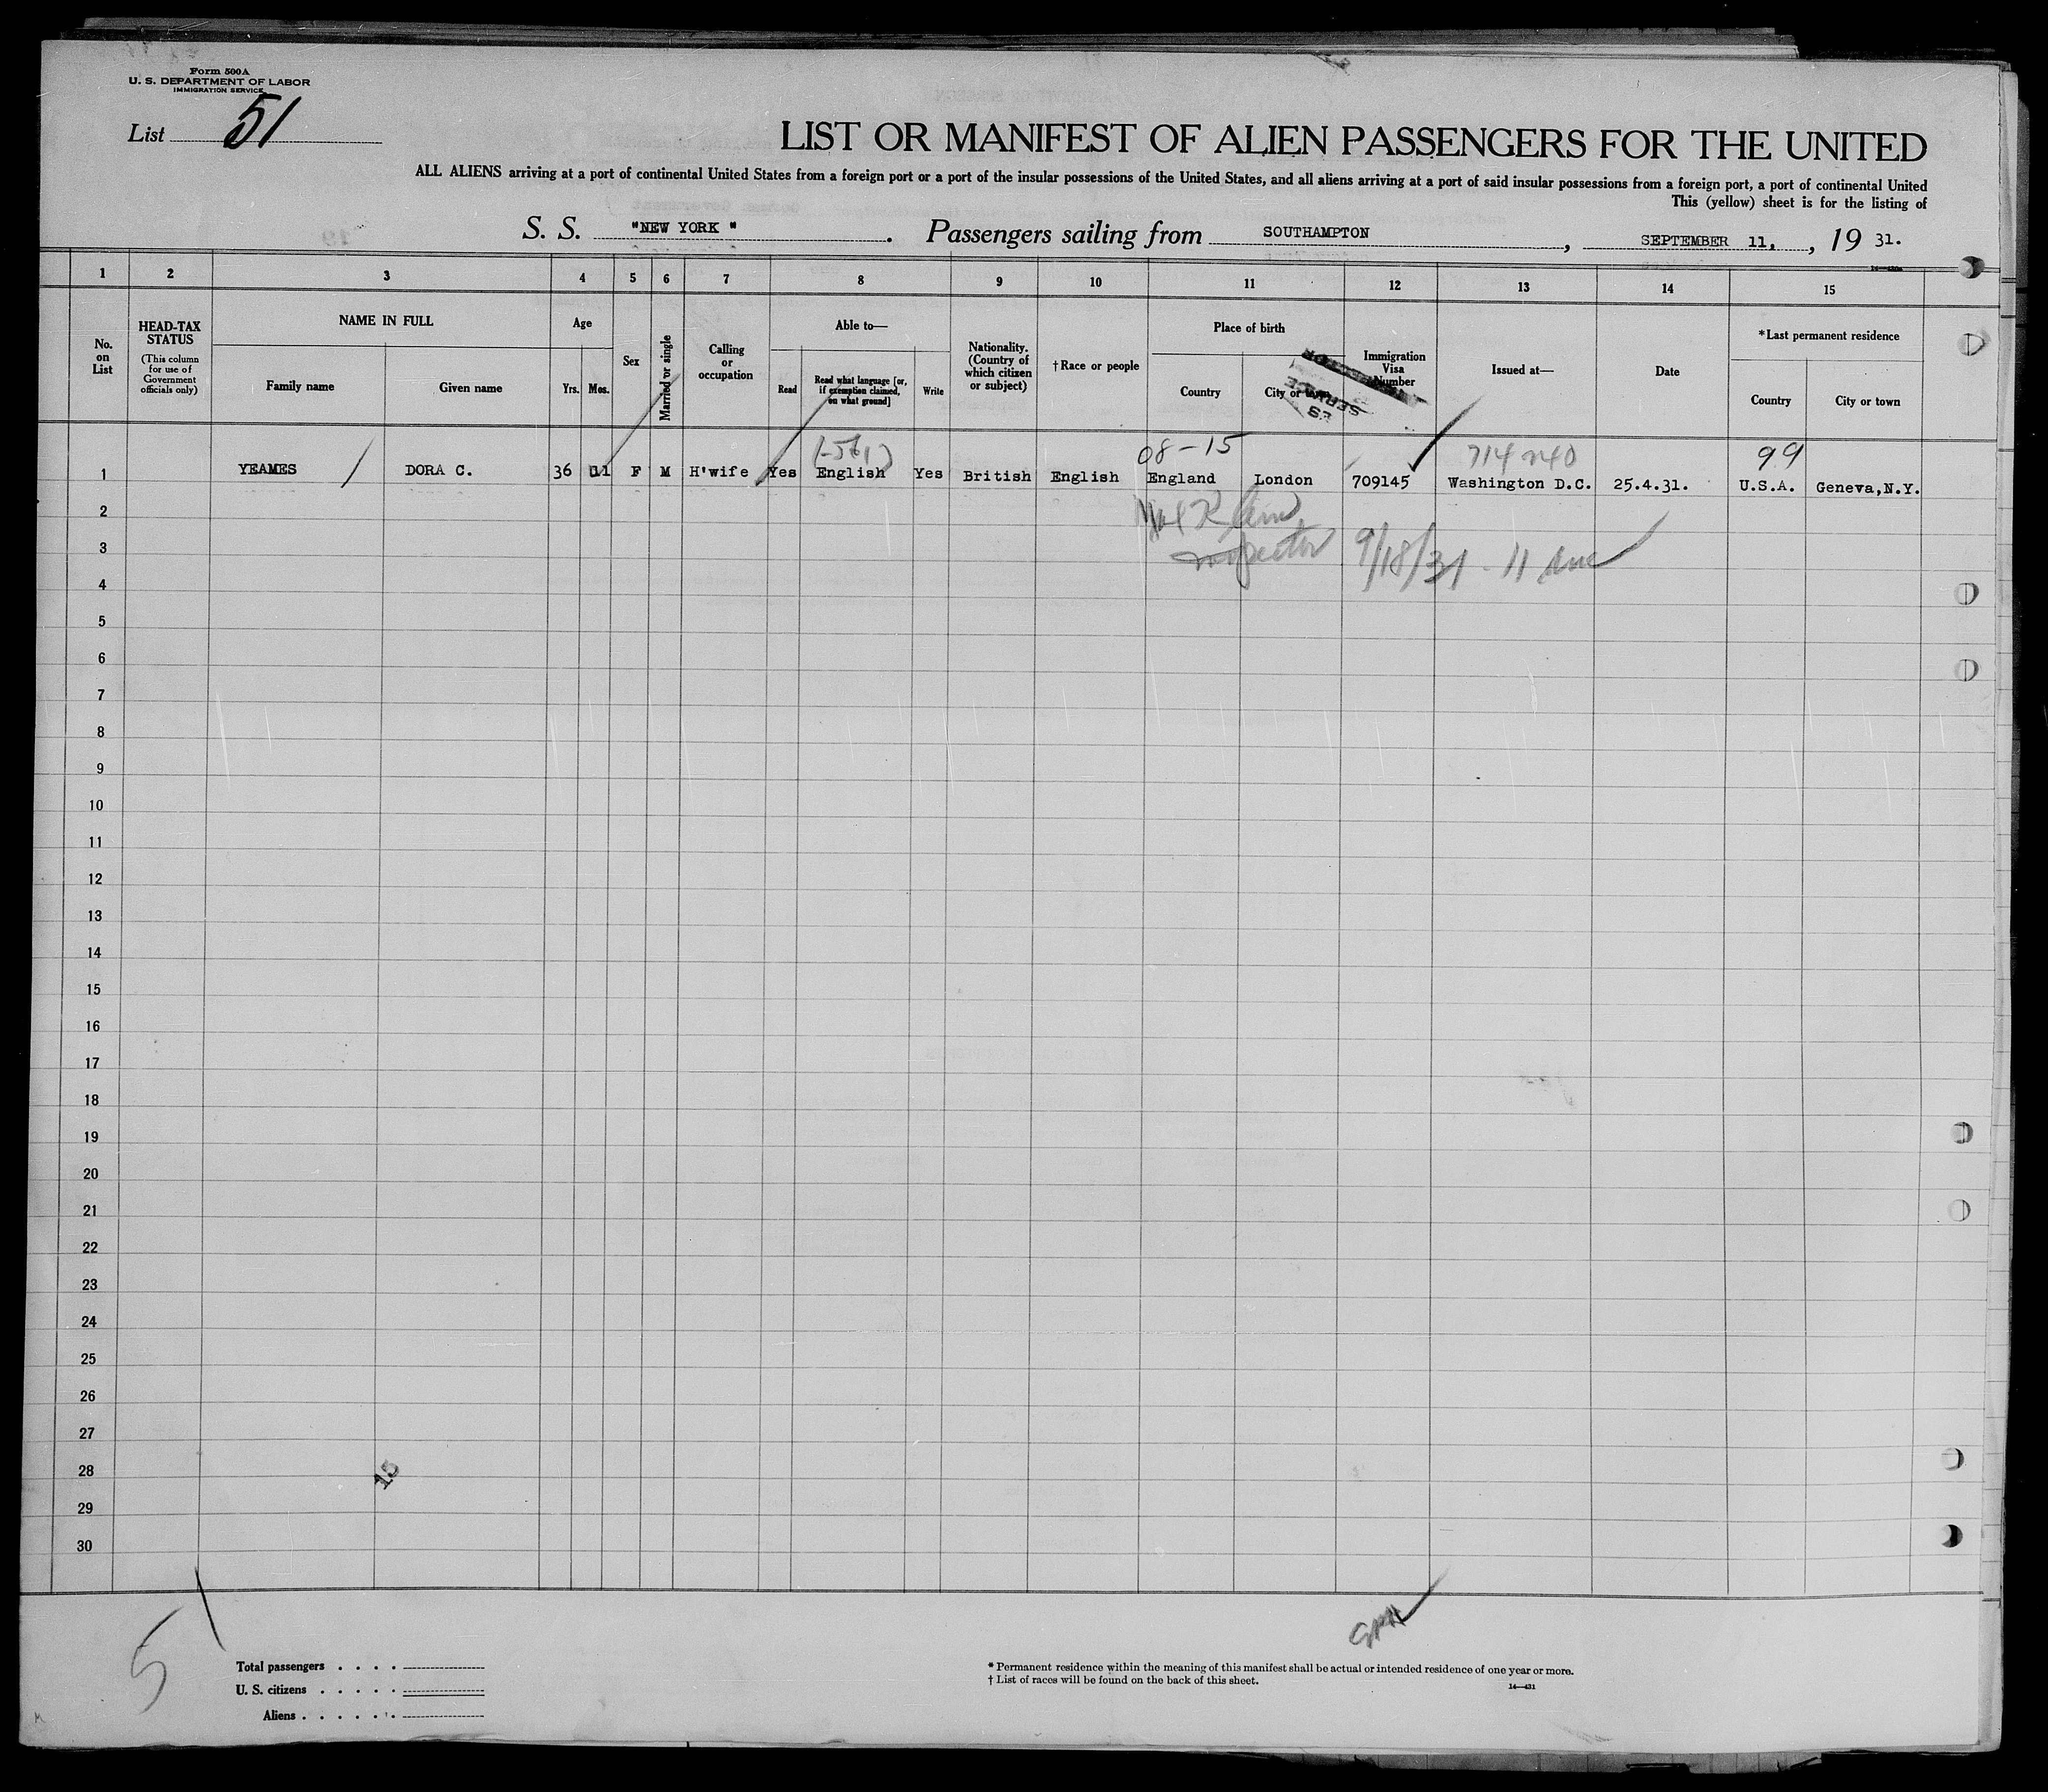 Form 500A
U. S. DEPARTMENT OF LABOR
IMMIGRATION SERVICE
List 51
LIST OR MANIFEST OF ALIEN PASSENGERS FOR THE UNITED
ALL ALIENS arriving at a port of continental United States from a foreign port or a port of the insular possessions of the United States, and all aliens arriving at a port of said insular possessions from a foreign port, a port of continental United
This (yellow) sheet is for the listing of
S. S. "NEW YORK". Passengers sailing from SOUTHAMPTON, SEPTEMBER 11, 19 31.
1 2 3 4 5 6 7 8 9 10 11 12 13 14 15
No. on List
HEAD-TAX STATUS
(This column for use of Government officials only)
NAME IN FULL
Family name Given name
Age
Yrs. Mos.
Sex
Married or single
Calling or occupation
Able to—
Read Read what language [or, if exemption claimed, on what ground] Write
Nationality. (Country of which citizen or subject)
†Race or people
Place of birth
Country City or town
Immigration Visa Number
Issued at—
Date
*Last permanent residence
Country City or town
SERVICE
08-15 99
1 YEAMES DORA C. 36 11 F M H'wife Yes English Yes British English England London 709145 Washington D.C. 25.4.31. U.S.A. Geneva,N.Y.
2
Inspector 9/18/31
3
4
5
6
7
8
9
10
11
12
13
14
15
16
17
18
19
20
21
22
23
24
25
26
27
28
15
29
30
5
Total passengers . . . .
U. S. citizens . . . . .
Aliens . . . . . .
* Permanent residence within the meaning of this manifest shall be actual or intended residence of one year or more.
† List of races will be found on the back of this sheet.
14—431